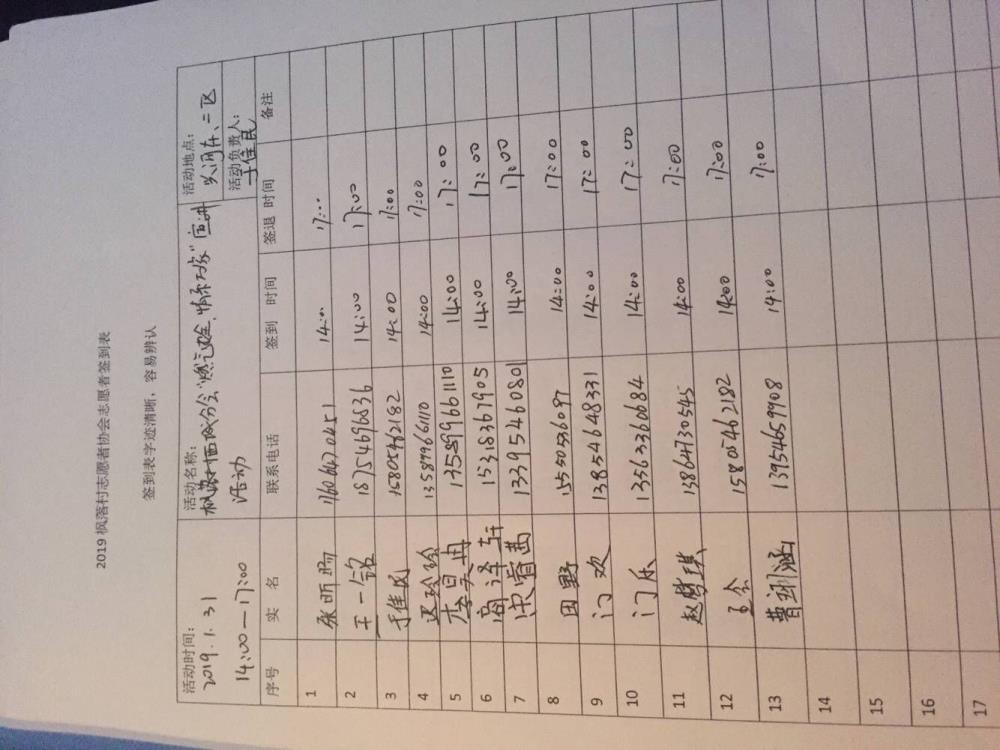 2019枫落村志愿者协会志愿者签到表
签到表字迹清晰，容易辨认
活动时间：
2019.1.31
14:00—17:00
活动名称：
活动
活动地点：
活动负责人：
于佳民
序号 实 名 联系电话 签到 时间 签退 时间 备注
1 张昕旸 14:·· 17:··
2 王一铭 18754696836 14:00 17:00
3 于佳民 15805462182 14:00 17:00
4 迟玲玲 13589966110 14:00 17:00
5 李昊冉 13589966110 14:00 17:00
6 商泽轩 15318367905 14:00 17:00
7 宋睿茜 13395460801 14:00 17:00
8 田野 15550536097 14:00 17:00
9 门欢 13854648331 14:00 17:00
10 门乐 13563366684 14:00 17:00
11 赵腾琪 13864730545 14:00 17:00
12 15805462182 14:00 17:00
13 曹翊涵 13954659908 14:00 17:00
14
15
16
17